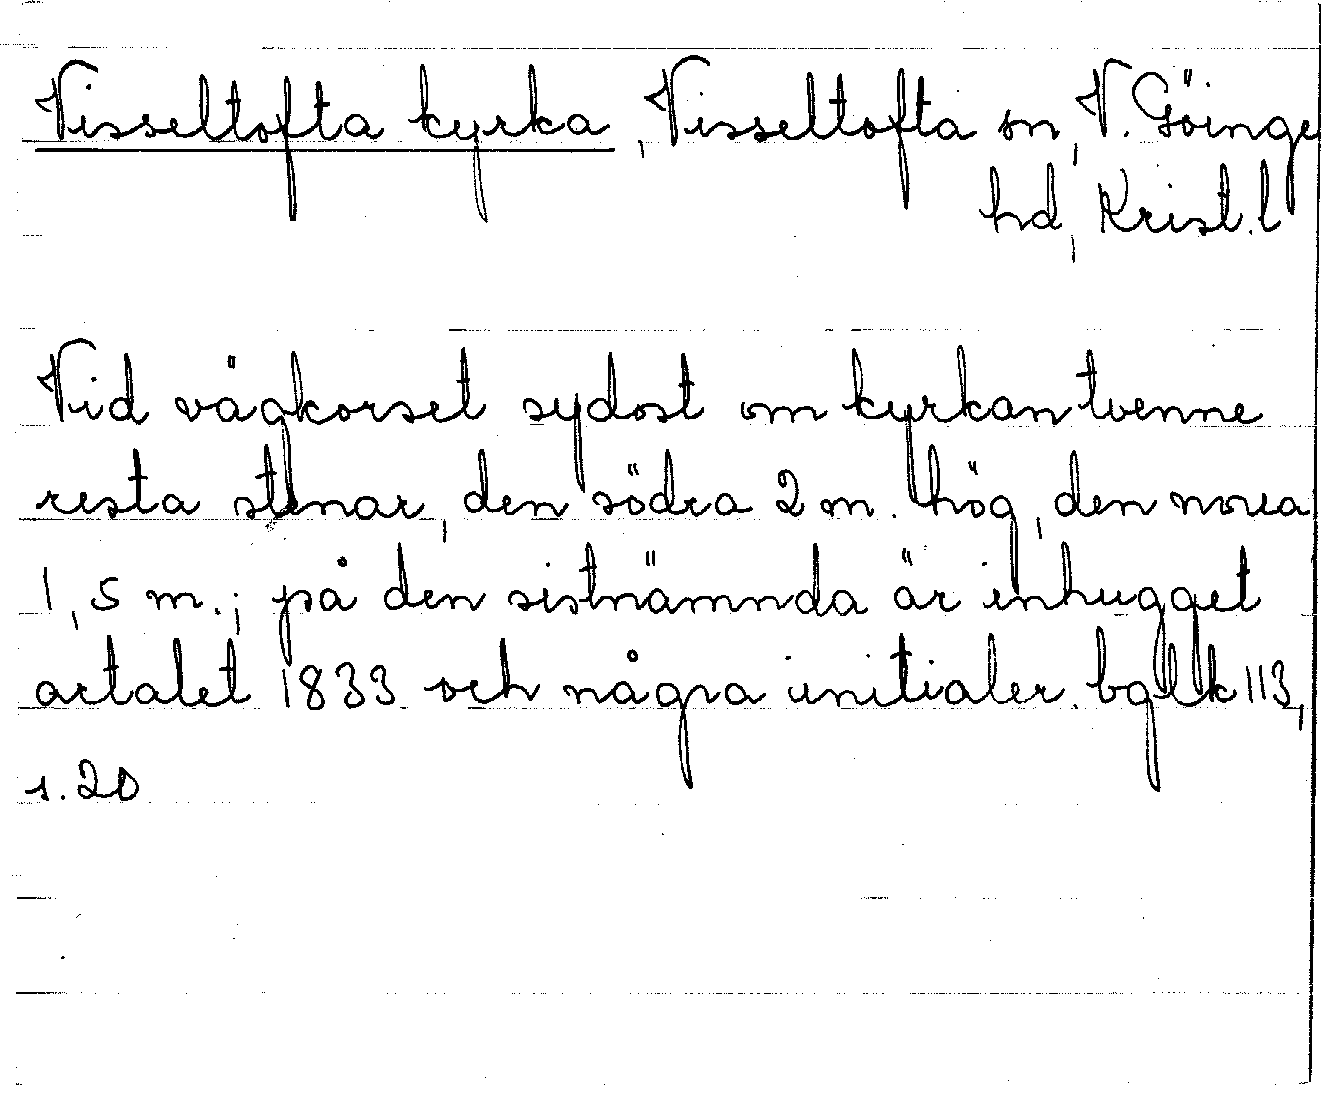 Visseltofta kyrka, Visseltofta sn, V. Göinge
hd, Krist. l
Vid vägkorset sydost om kyrkan tvenne
resta stenar, den södra 2 m. hög, den norra
1,5 m.; på den sistnämnda är inhugget
artalet 1833 och några initialer. bglk 113,
s. 20